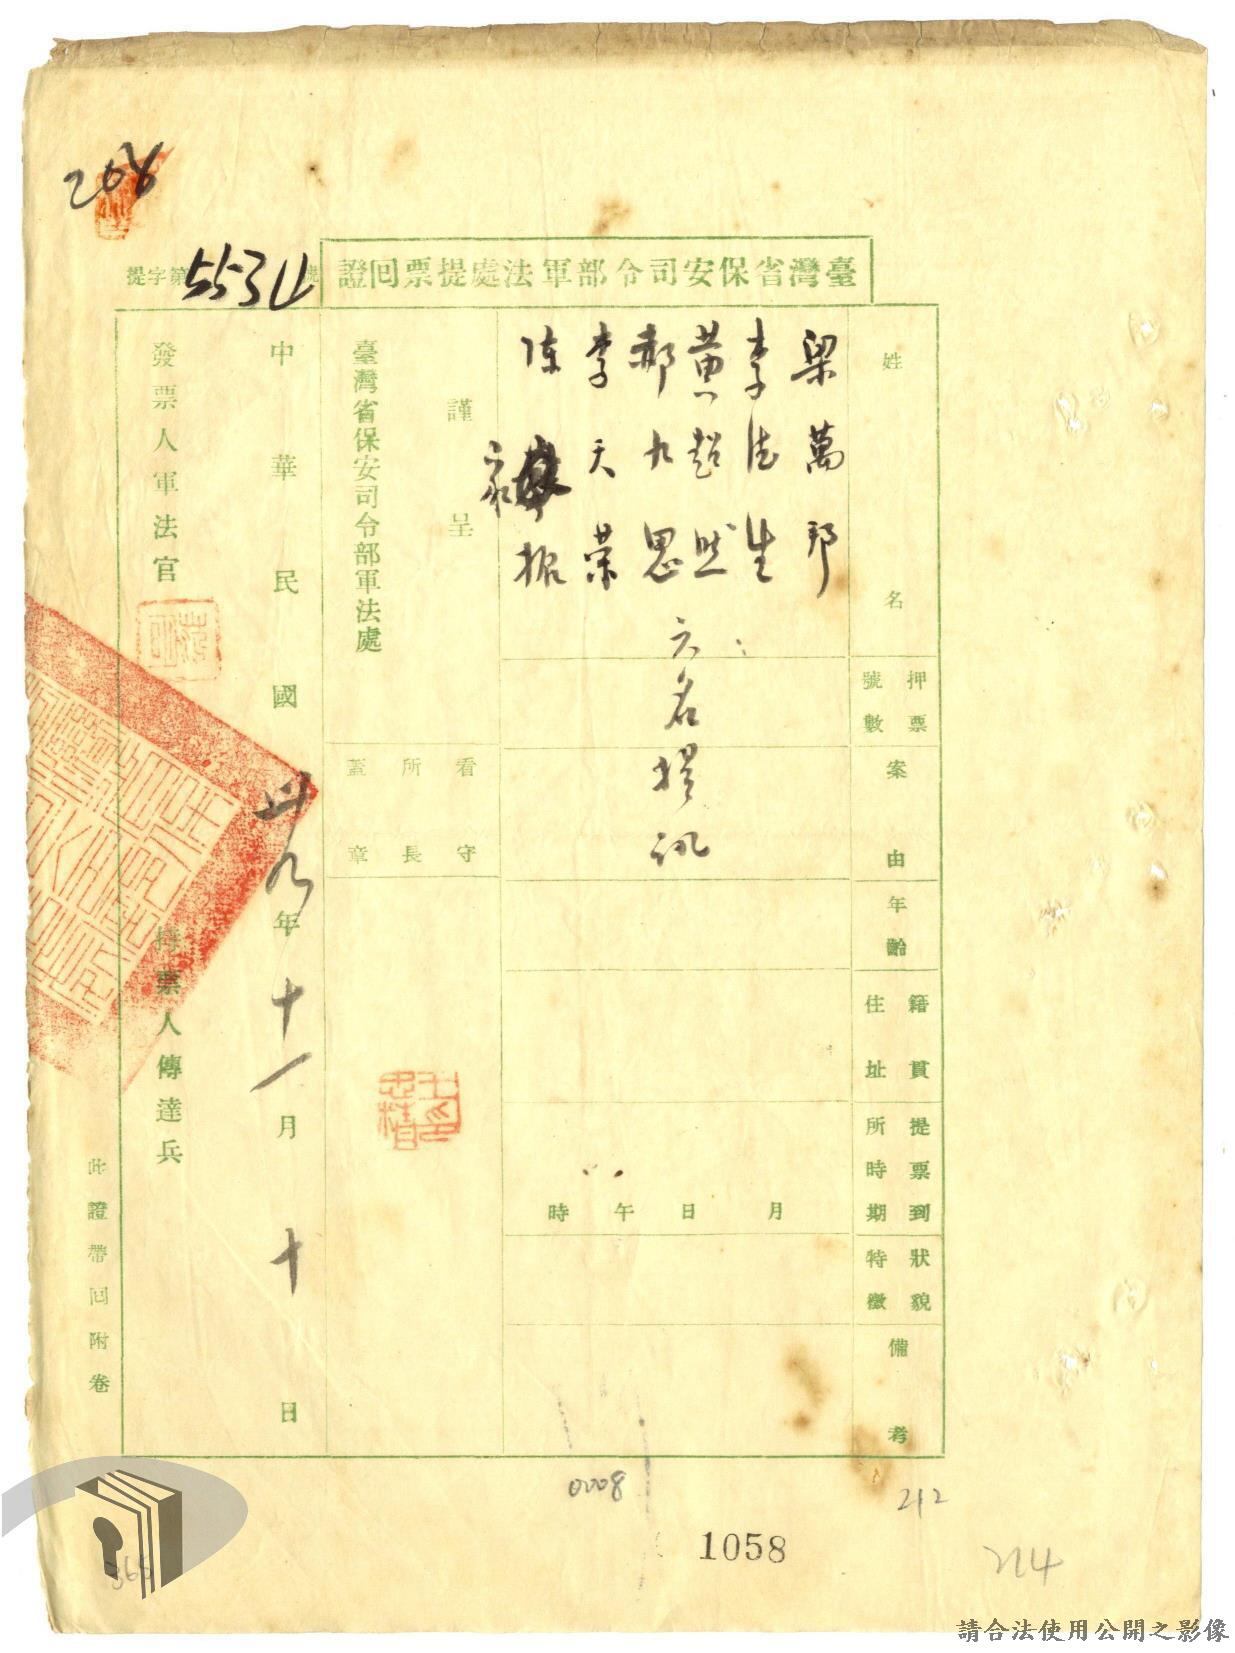 208
臺灣省保安司令部軍法處提票回證
提字第5534號
姓名
押票號數
案由
年齡
籍貫住址
提票到所時期
狀貌特徵
備考
梁萬邦
李德生
黃超然
郝九思
李天榮
陳家振
六名提訊
月日午時
謹呈
臺灣省保安司令部軍法處
看守所長蓋章
中華民國卅九年十一月十日
發票人軍法官
持票人傳達兵
此證帶回附卷
0008
212
1058
214
請合法使用公開之影像